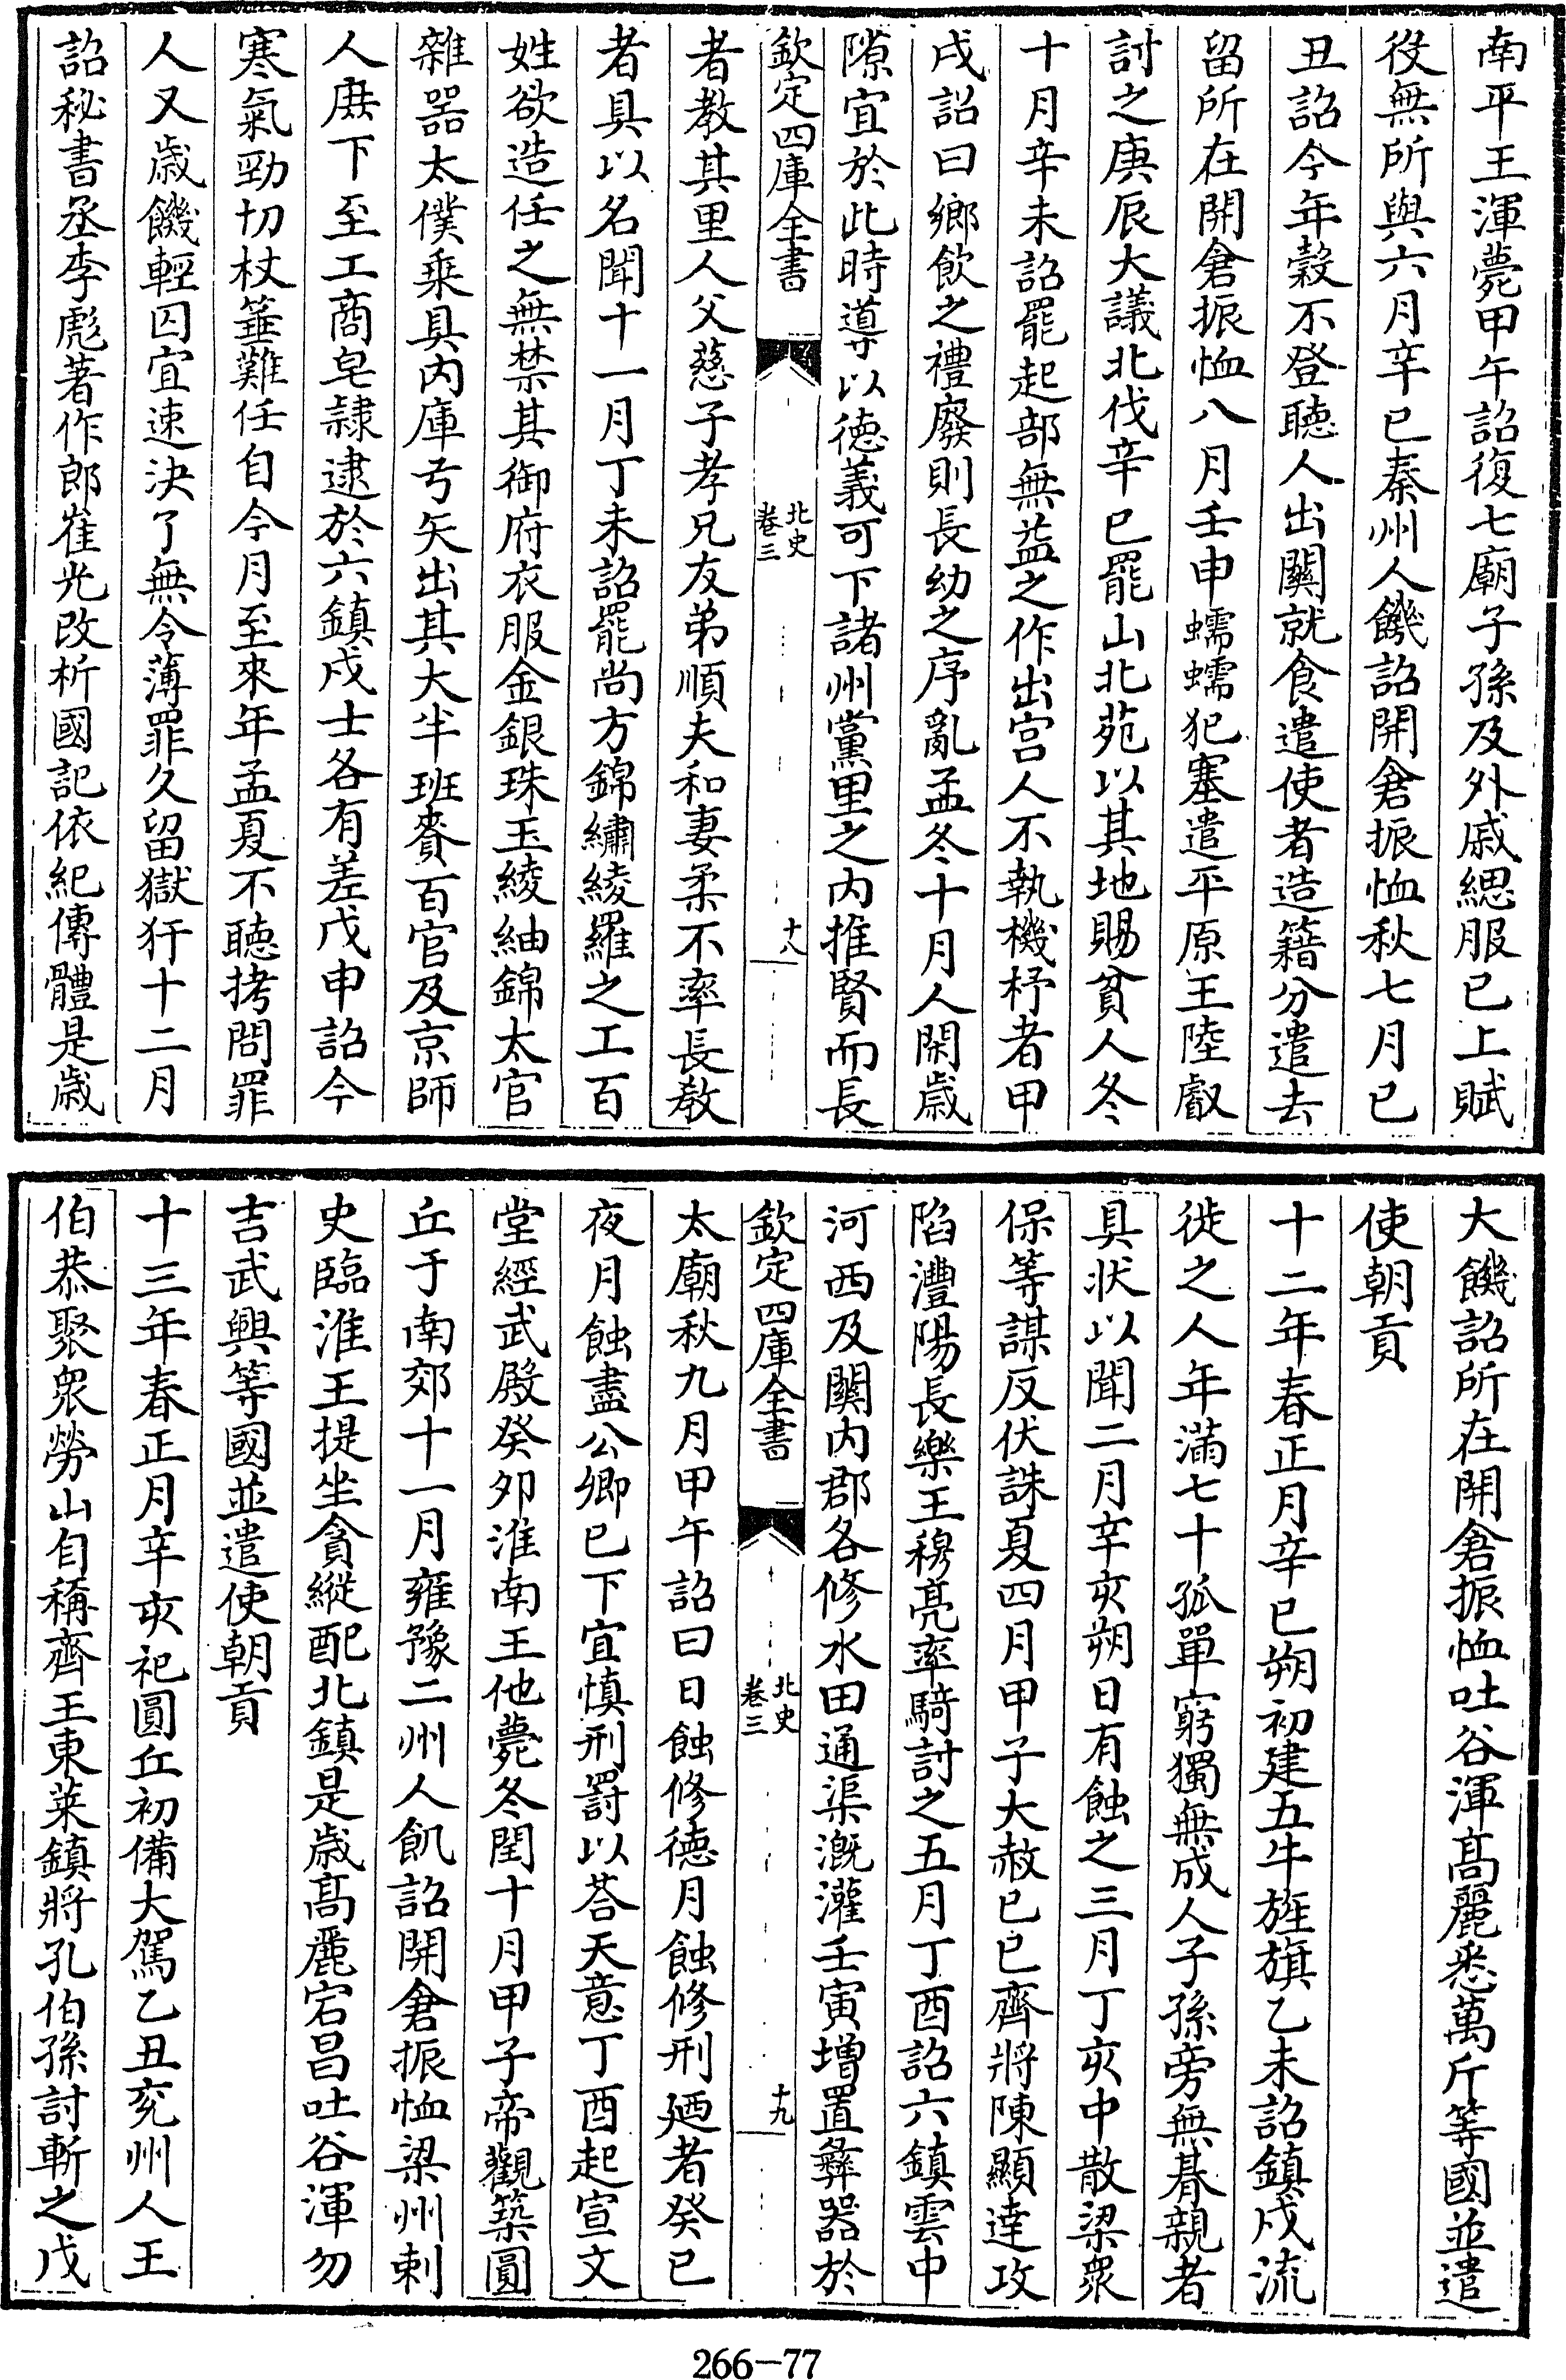 南平王渾薨甲午詔復七廟子孫及外戚緦服已上賦
役無所與六月辛巳秦州人饑詔開倉振恤秋七月已
丑詔今年穀不登聽人出關就食遣使者造籍分遣去
留所在開倉振恤八月壬申蠕蠕犯塞遣平原王陸叡
討之庚辰大議北伐辛巳罷山北苑以其地賜貧人冬
十月辛未詔罷起部無益之作出宫人不執機杼者甲
戌詔曰鄉飲之禮廢則長幼之序亂孟冬十月人閑歳
隙宜於此時導以徳義可下諸州黨里之内推賢而長
欽定四庫全書
北史
卷三
十八
者教其里人父慈子孝兄友弟順夫和妻柔不率長教
者具以名聞十一月丁未詔罷尚方錦繡綾羅之工百
姓欲造任之無禁其御府衣服金銀珠玉綾紬錦太官
雜器太僕乗具内庫弓矢出其大半班賚百官及京師
人庶下至工商皂隷逮於六鎮戍士各有差戊申詔今
寒氣勁切杖箠難任自今月至來年孟夏不聽拷問罪
人又歳饑輕囚宜速決了無令薄罪久留獄犴十二月
詔秘書丞李彪著作郎崔光改析國記依紀傳體是歳
大饑詔所在開倉振恤吐谷渾髙麗悉萬斤等國並遣
使朝貢
十二年春正月辛巳朔初建五牛旌旗乙未詔鎮戍流
徙之人年滿七十孤單窮獨無成人子孫旁無朞親者
具狀以聞二月辛亥朔日有蝕之三月丁亥中散梁衆
保等謀反伏誅夏四月甲子大赦已巳齊將陳顯達攻
陷澧陽長樂王穆亮率騎討之五月丁酉詔六鎮雲中
河西及關内郡各修水田通渠溉灌壬寅增置彝器於
欽定四庫全書
北史
卷三
十九
太廟秋九月甲午詔曰日蝕修徳月蝕修刑廼者癸巳
夜月蝕盡公卿已下宜慎刑罰以荅天意丁酉起宣文
堂經武殿癸夘淮南王他薨冬閏十月甲子帝觀築圓
丘于南郊十一月雍豫二州人飢詔開倉振恤梁州剌
史臨淮王提坐貪縱配北鎮是歳髙麗宕昌吐谷渾勿
吉武興等國並遣使朝貢
十三年春正月辛亥祀圓丘初備大駕乙丑兖州人王
伯恭聚衆勞山自稱齊王東萊鎮將孔伯孫討斬之戊
266-77